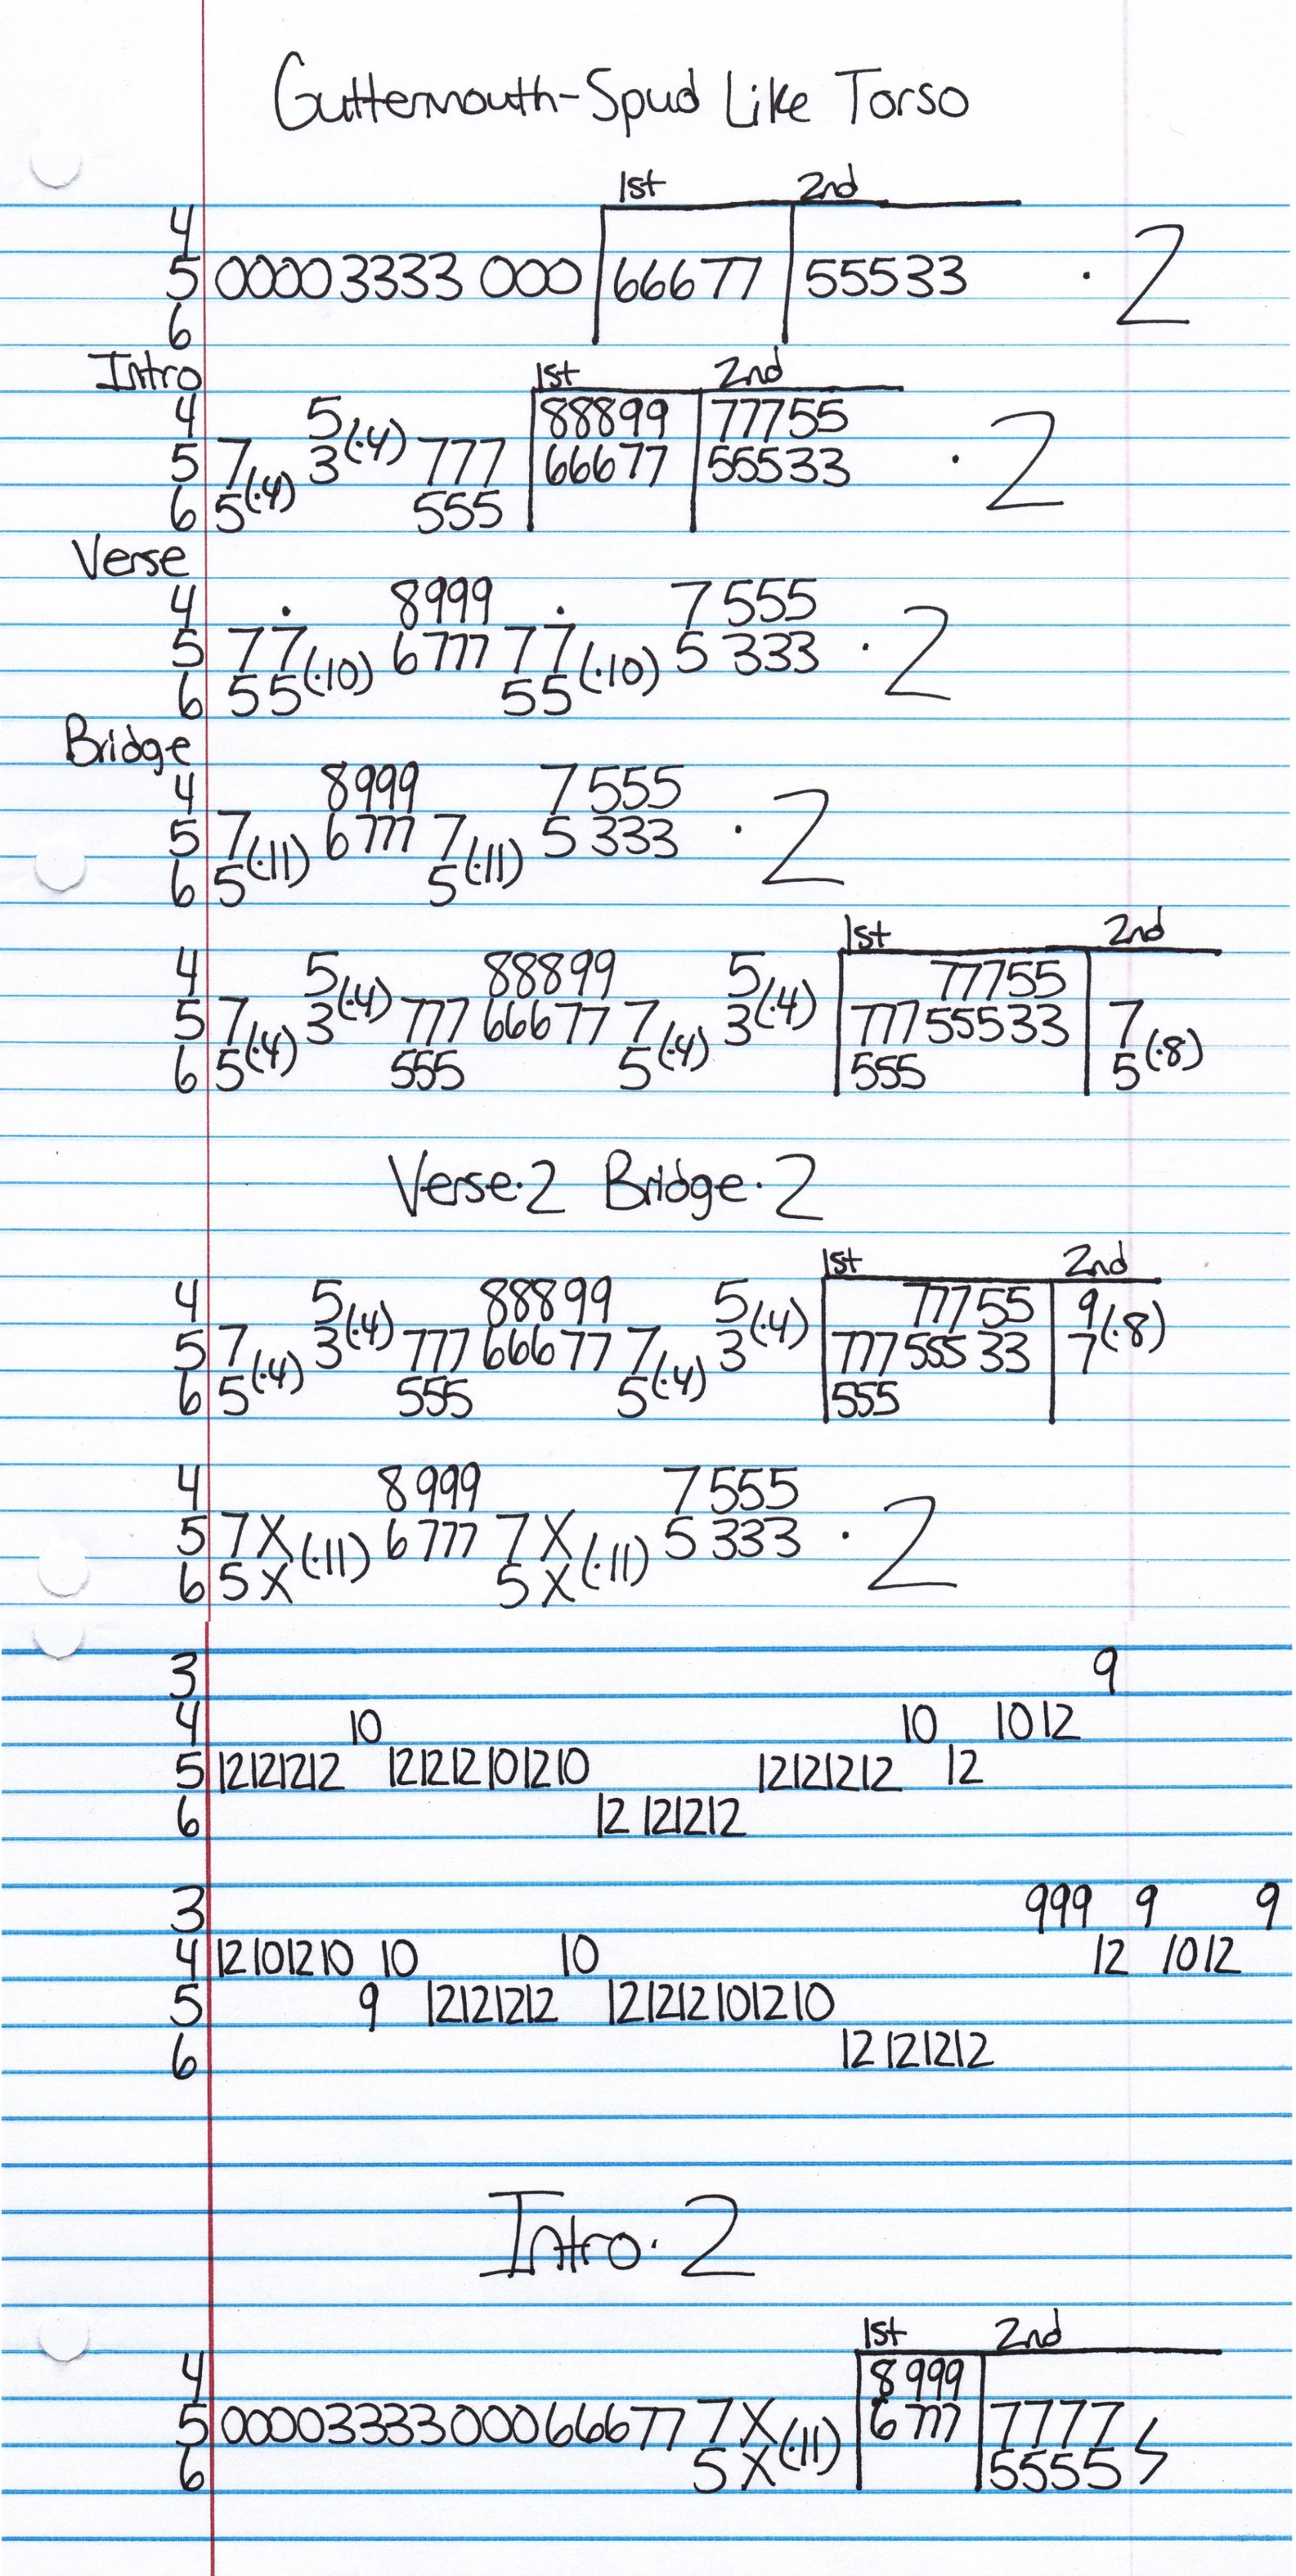 Guttermouth-Spud Like Torso
1st 2nd
4
5 0000 3333 000 66677 55533 · 2
6
Intro 1st 2nd
4 5(·4) 88899 77755
5 7(·4) 3 777 66677 55533 · 2
6 5 555
Verse
4 · 8999 · 7 555
5 77(·10) 6 777 77(·10) 5 333 · 2
6 55 55
Bridge
4 8999 7 555
5 7(·11) 6 777 7(·11) 5 333 · 2
6 5 5
1st 2nd
4 5(·4) 88899 5(·4) 77755
5 7(·4) 3 777 66677 7(·4) 3 777 555 33 7(·8)
6 5 555 5 555 5
Verse·2 Bridge·2
1st 2nd
4 5(·4) 88899 5(·4) 77755 9(·8)
5 7(·4) 3 777 66677 7(·4) 3 777 555 33 7
6 5 555 5 555
4 8999 7 555
5 7X(·11) 6 777 7X(·11) 5 333 · 2
6 5X 5X
3 9
4 10 10 10 12
5 12121212 12 12 12 10 12 10 12121212 12
6 12 121212
3 999 9 9
4 12101210 10 10 12 1012
5 9 12121212 12 12 12 10 12 10
6 12 121212
Intro·2
1st 2nd
4 8 999
5 0000333300066677 7X(·11) 6 777 7777
6 5X 5555